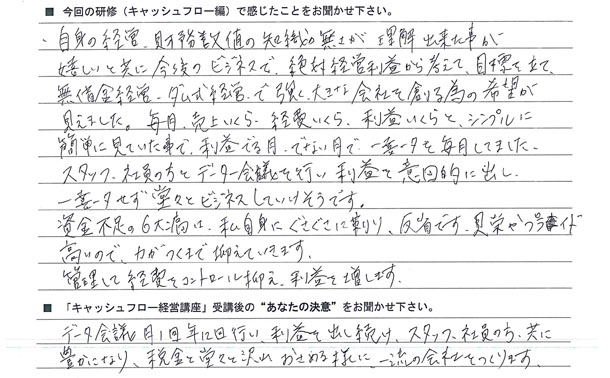 ■ 今回の研修（キャッシュフロー編）で感じたことをお聞かせ下さい。
・自身の経営、財務数値の知識の無さが理解出来た事が
嬉しいと共に今後のビジネスで、絶対経営利益から考えて、目標を立て、
無借金経営・ダム式経営で強く大きな会社を創る為の希望が
見えました。毎月、売上いくら、経費いくら、利益いくらと、シンプルに
簡単に見ていた事で、利益でる月、でない月で、一喜一憂を毎月してました。
スタッフ、社員の方とデーター会議を行い利益を意図的に出し、
一喜一憂せず堂々とビジネスしていけそうです。
資金不足の6大病は、私自身にぐさぐさに刺り、反省です。見栄やプライド
高いので、力がつくまで抑えていきます。
管理して経費をコントロール抑え、利益を増します。
■ 「キャッシュフロー経営講座」受講後の“あなたの決意”をお聞かせ下さい。
データ会議月1回年12回行い、利益を出し続け、スタッフ、社員の方、共に
豊かになり、税金を堂々と沢山おさめる様に、一流の会社をつくります。